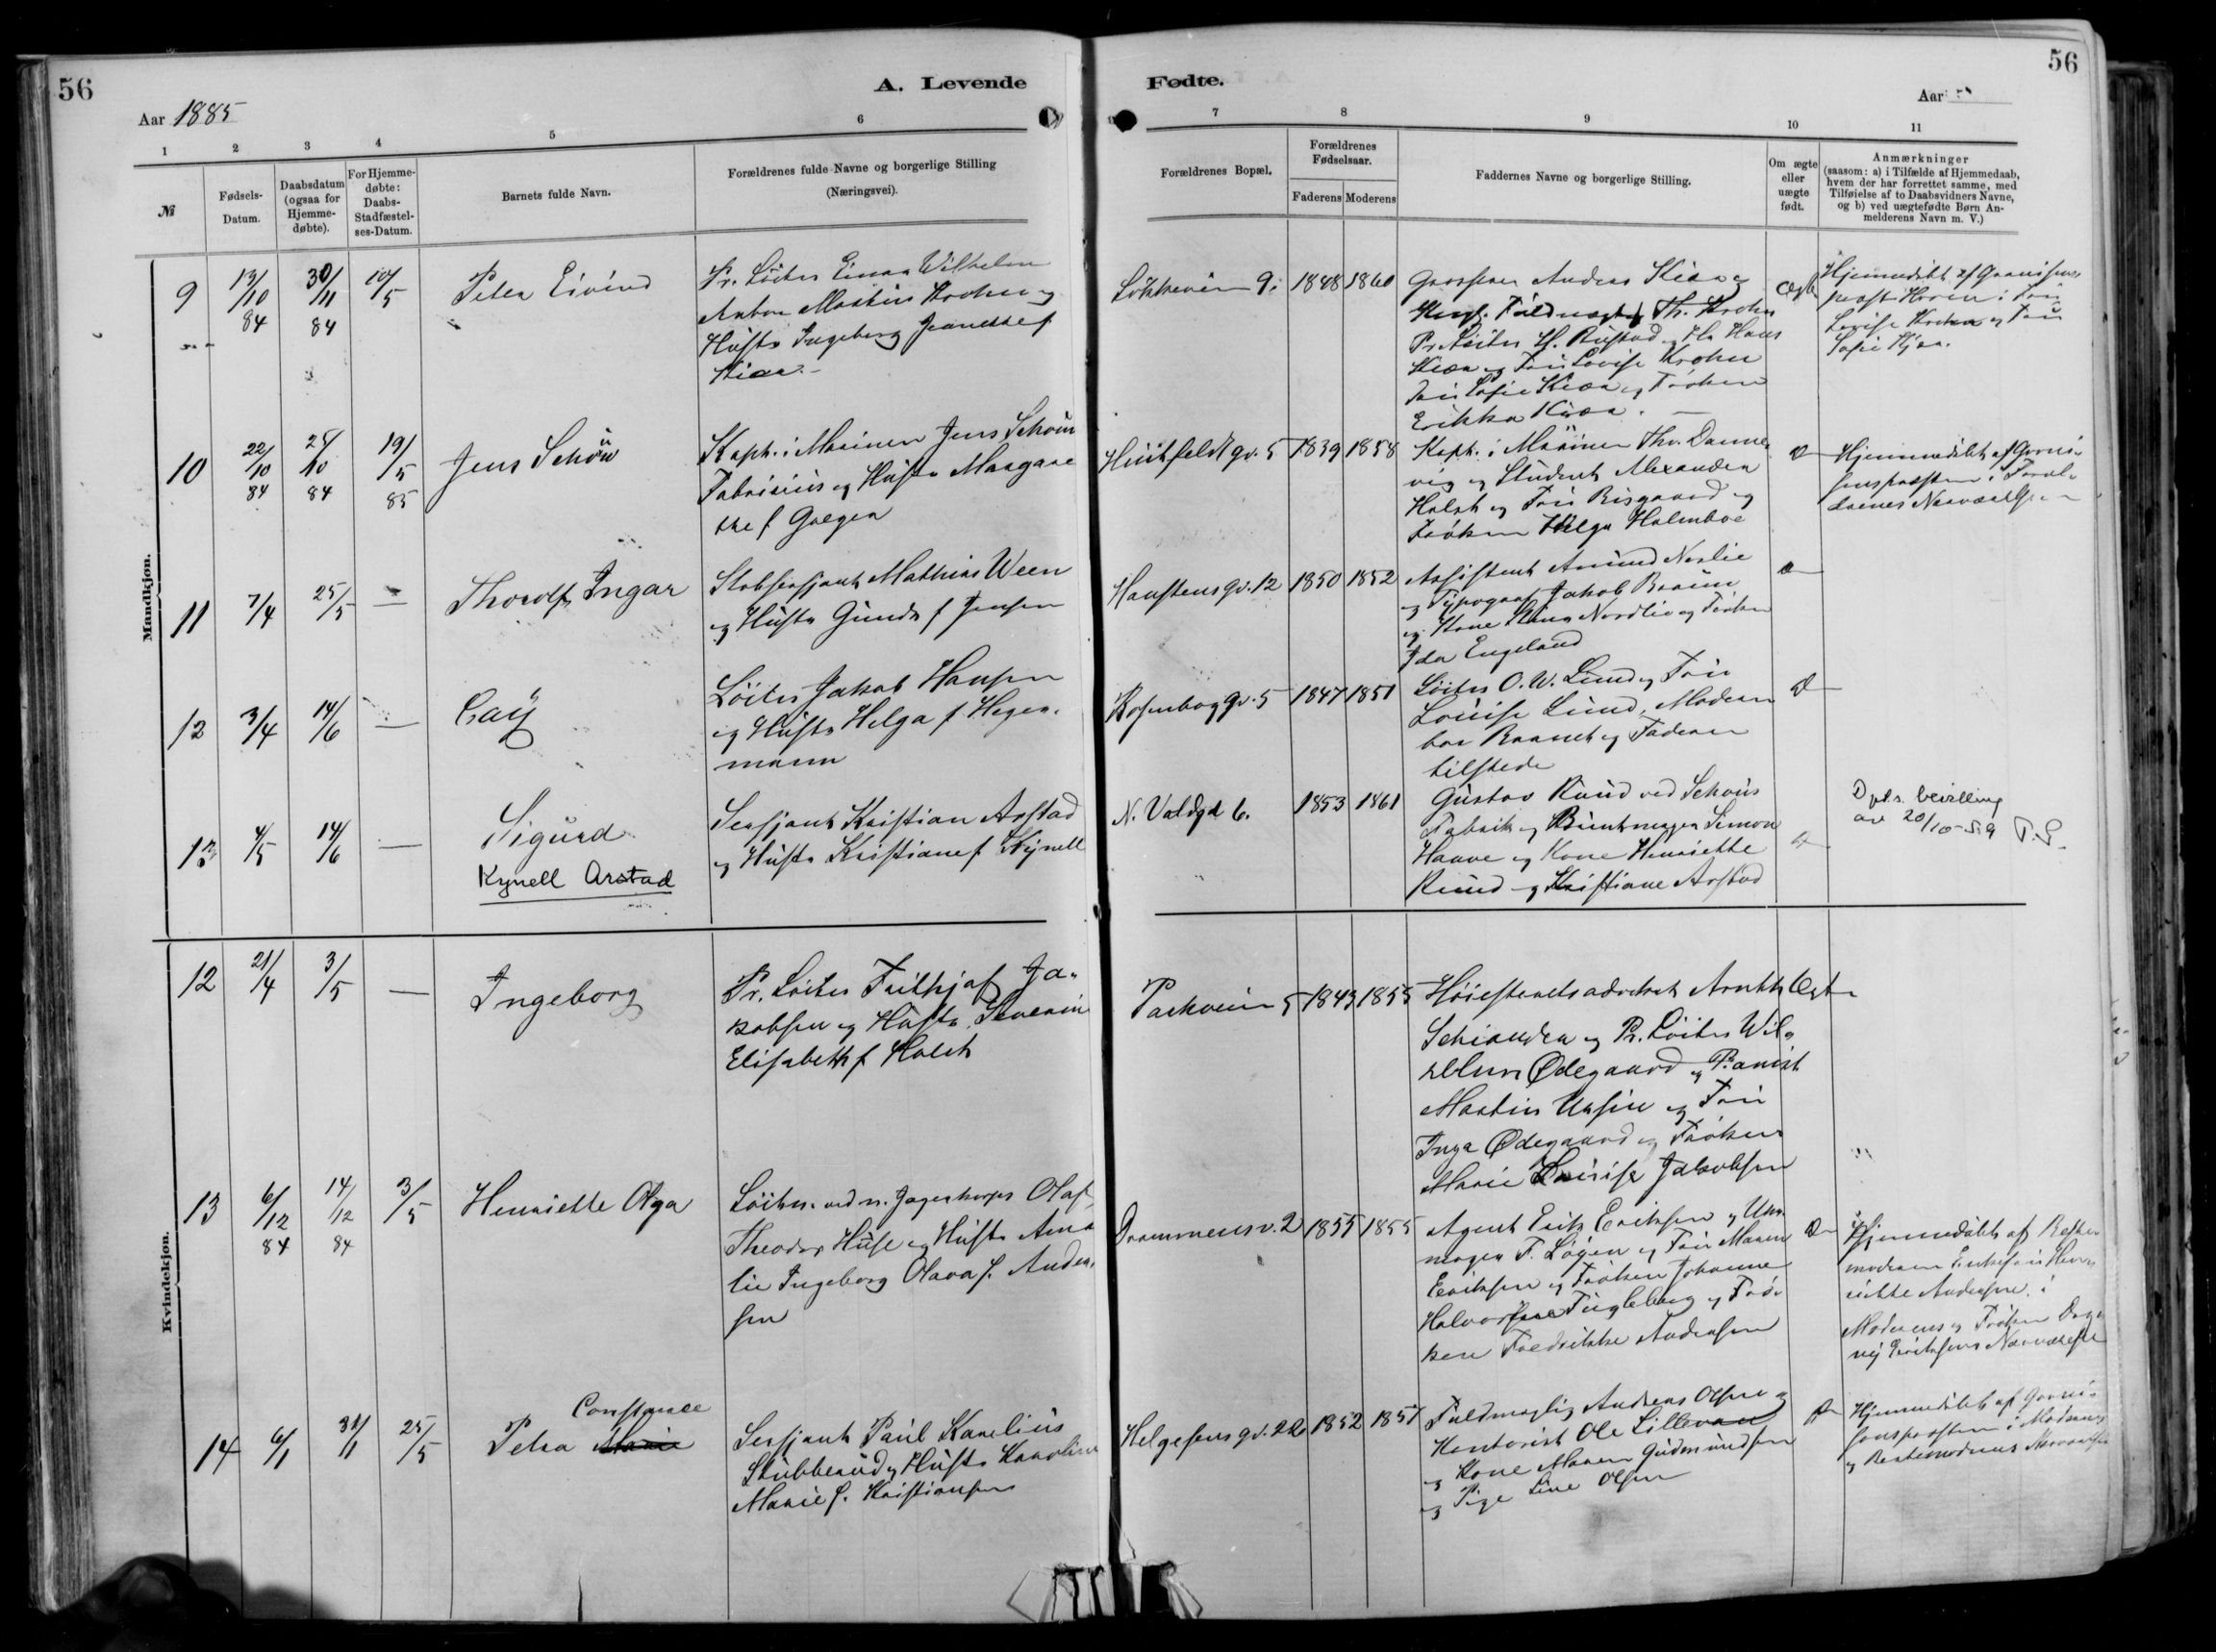 56
A. Levende
Fødte.
56
Aar 1885
Aar
1
2
3
4
5
6
7
8
9
10
11
№
Fødsels-
Datum.
Daabsdatum
(ogsaa for
Hjemme-
døbte).
For Hjemme-
døbte:
Daabs-
Stadfæstel-
ses-Datum.
Barnets fulde Navn.
Forældrenes fulde Navne og borgerlige Stilling
(Næringsvei).
Forældrenes Bopæl.
Forældrenes
Fødselsaar.
Faderens
Moderens
Faddernes Navne og borgerlige Stilling.
Om ægte
eller
uægte
født.
Anmærkninger
(saasom: a) i Tilfælde af Hjemmedaab,
hvem der har forrettet samme, med
Tilføielse af to Daabsvidners Navne,
og b) ved uægtefødte Børn An-
melderens Navn m. V.)
Mandkjøn.
9
13/10 84
30/11 84
10/5
Peter Eivind
Pr. Löitn Einar Wilhelm
Anton Martin Krohn og
Hustr Ingeborg Jeanette f
Kiær
9
1848
1860
Grosserer Anders Kiær og
Fuldmægt Th. Krohn
Pr. Löitn H. Rustad og Hr Hans
Kiær og Fru Lovise Krohn
Fru Sofie Kiær og Fröken
Erikka Kiær.
Ægte
Hjemmedöbt af Garnisons
præst Horn i Fru
Lovise Krohn og Fru
Sofie Kjær.
10
22/10 84
25/10 84
19/5 85
Jens Schou
Kapt. i Marinen Jens Schou
Fabricius og Hustr Margare
the f Gregers
Huitfeldtgd. 5
1839
1858
Kapt. i Marinen Thv. Danne
vig og Student Alexander
Holst og Fru Bisgaard og
Fröken Helga Holmboe
Hjemmedöbt af Garni-
sonspræsten i Foræl-
drenes Nærværelse
11
7/4
25/5
—
Thorolf Ingar
Stabsersjant Mathias Ween
og Hustr Gunda f Jensen
Haustensgd. 12
1850
1852
Assistent Amund Norlie
og Typograf Jakob Braun
og Kone Stina Nordlie og Fröken
Ida Engeland
12
3/4
14/6
—
Cay
Löitn Jakob Hansen
og Hustr Helga f Heger-
mann
Rosenborggd. 5
1847
1851
Löitn O. W. Lund og Fru
Louise Lund. Moderen
bar Barnet og Faderen
tilstede
13
4/5
14/6
—
Sigurd
Kynell Arstad
Sersjant Kristian Arstad
og Hustr Kristiane f Kynell
N. Voldgd 6.
1853
1861
Gustav Ruud ved Schous
Fabrik og Buntmager Simon
Haave og Kone Henriette
Ruud og Kristiane Arstad
Dpts. bevilling
av 20/10-59
Kvindekjøn.
12
21/4
3/5
—
Ingeborg
Pr. Löitn Frithjof Ja-
kobsen og Hustr Severin
Elisabeth f Holst
Parkveien 5
1843
1855
Höiesteretsadvokat Arntth
Schiander og Pr. Löitn Wil-
helm Ødegaard og Pianist
Martin Ursin og Fru
Inga Ødegaard og Fröken
Marie Lovise Jakobsen
Ægte
13
6/12 84
14/12 84
3/5
Henriette Olga
Löitn. ved n. Jægerkorps Olaf
Theodor Huse og Hustr Ama
lie Ingeborg Olava f. Ander-
sen
Drammensv. 2
1855
1855
Agent Fritz Eriksen og Uhr
mager T. Lögen og Fru Maren
Eriksen og Fröken Johanne
Halvorsen Fuglebarg og Frö-
ken Fredrikke Andersen
Hjemmedöbt af Beste-
moderen Enkefru Hen-
riette Andersen i
Moderens og Fröken Dag-
ny Eriksens Nærværelse
14
6/1
31/1
25/5
Constance
Petra Marie
Sersjant Paul Karelius
Stubberud og Hustr Karoline
Marie f. Kristiansen
Helgesensgd. 26
1852
1857
Fuldmægtig Andreas Olsen og
Kontorist Ole Lillevan
og Kone Maren Gudmundsen
og Pige Line Olsen
Hjemmedöbt af Garni-
sonspræsten i Moderens
og Bestemoderens Nærværelse